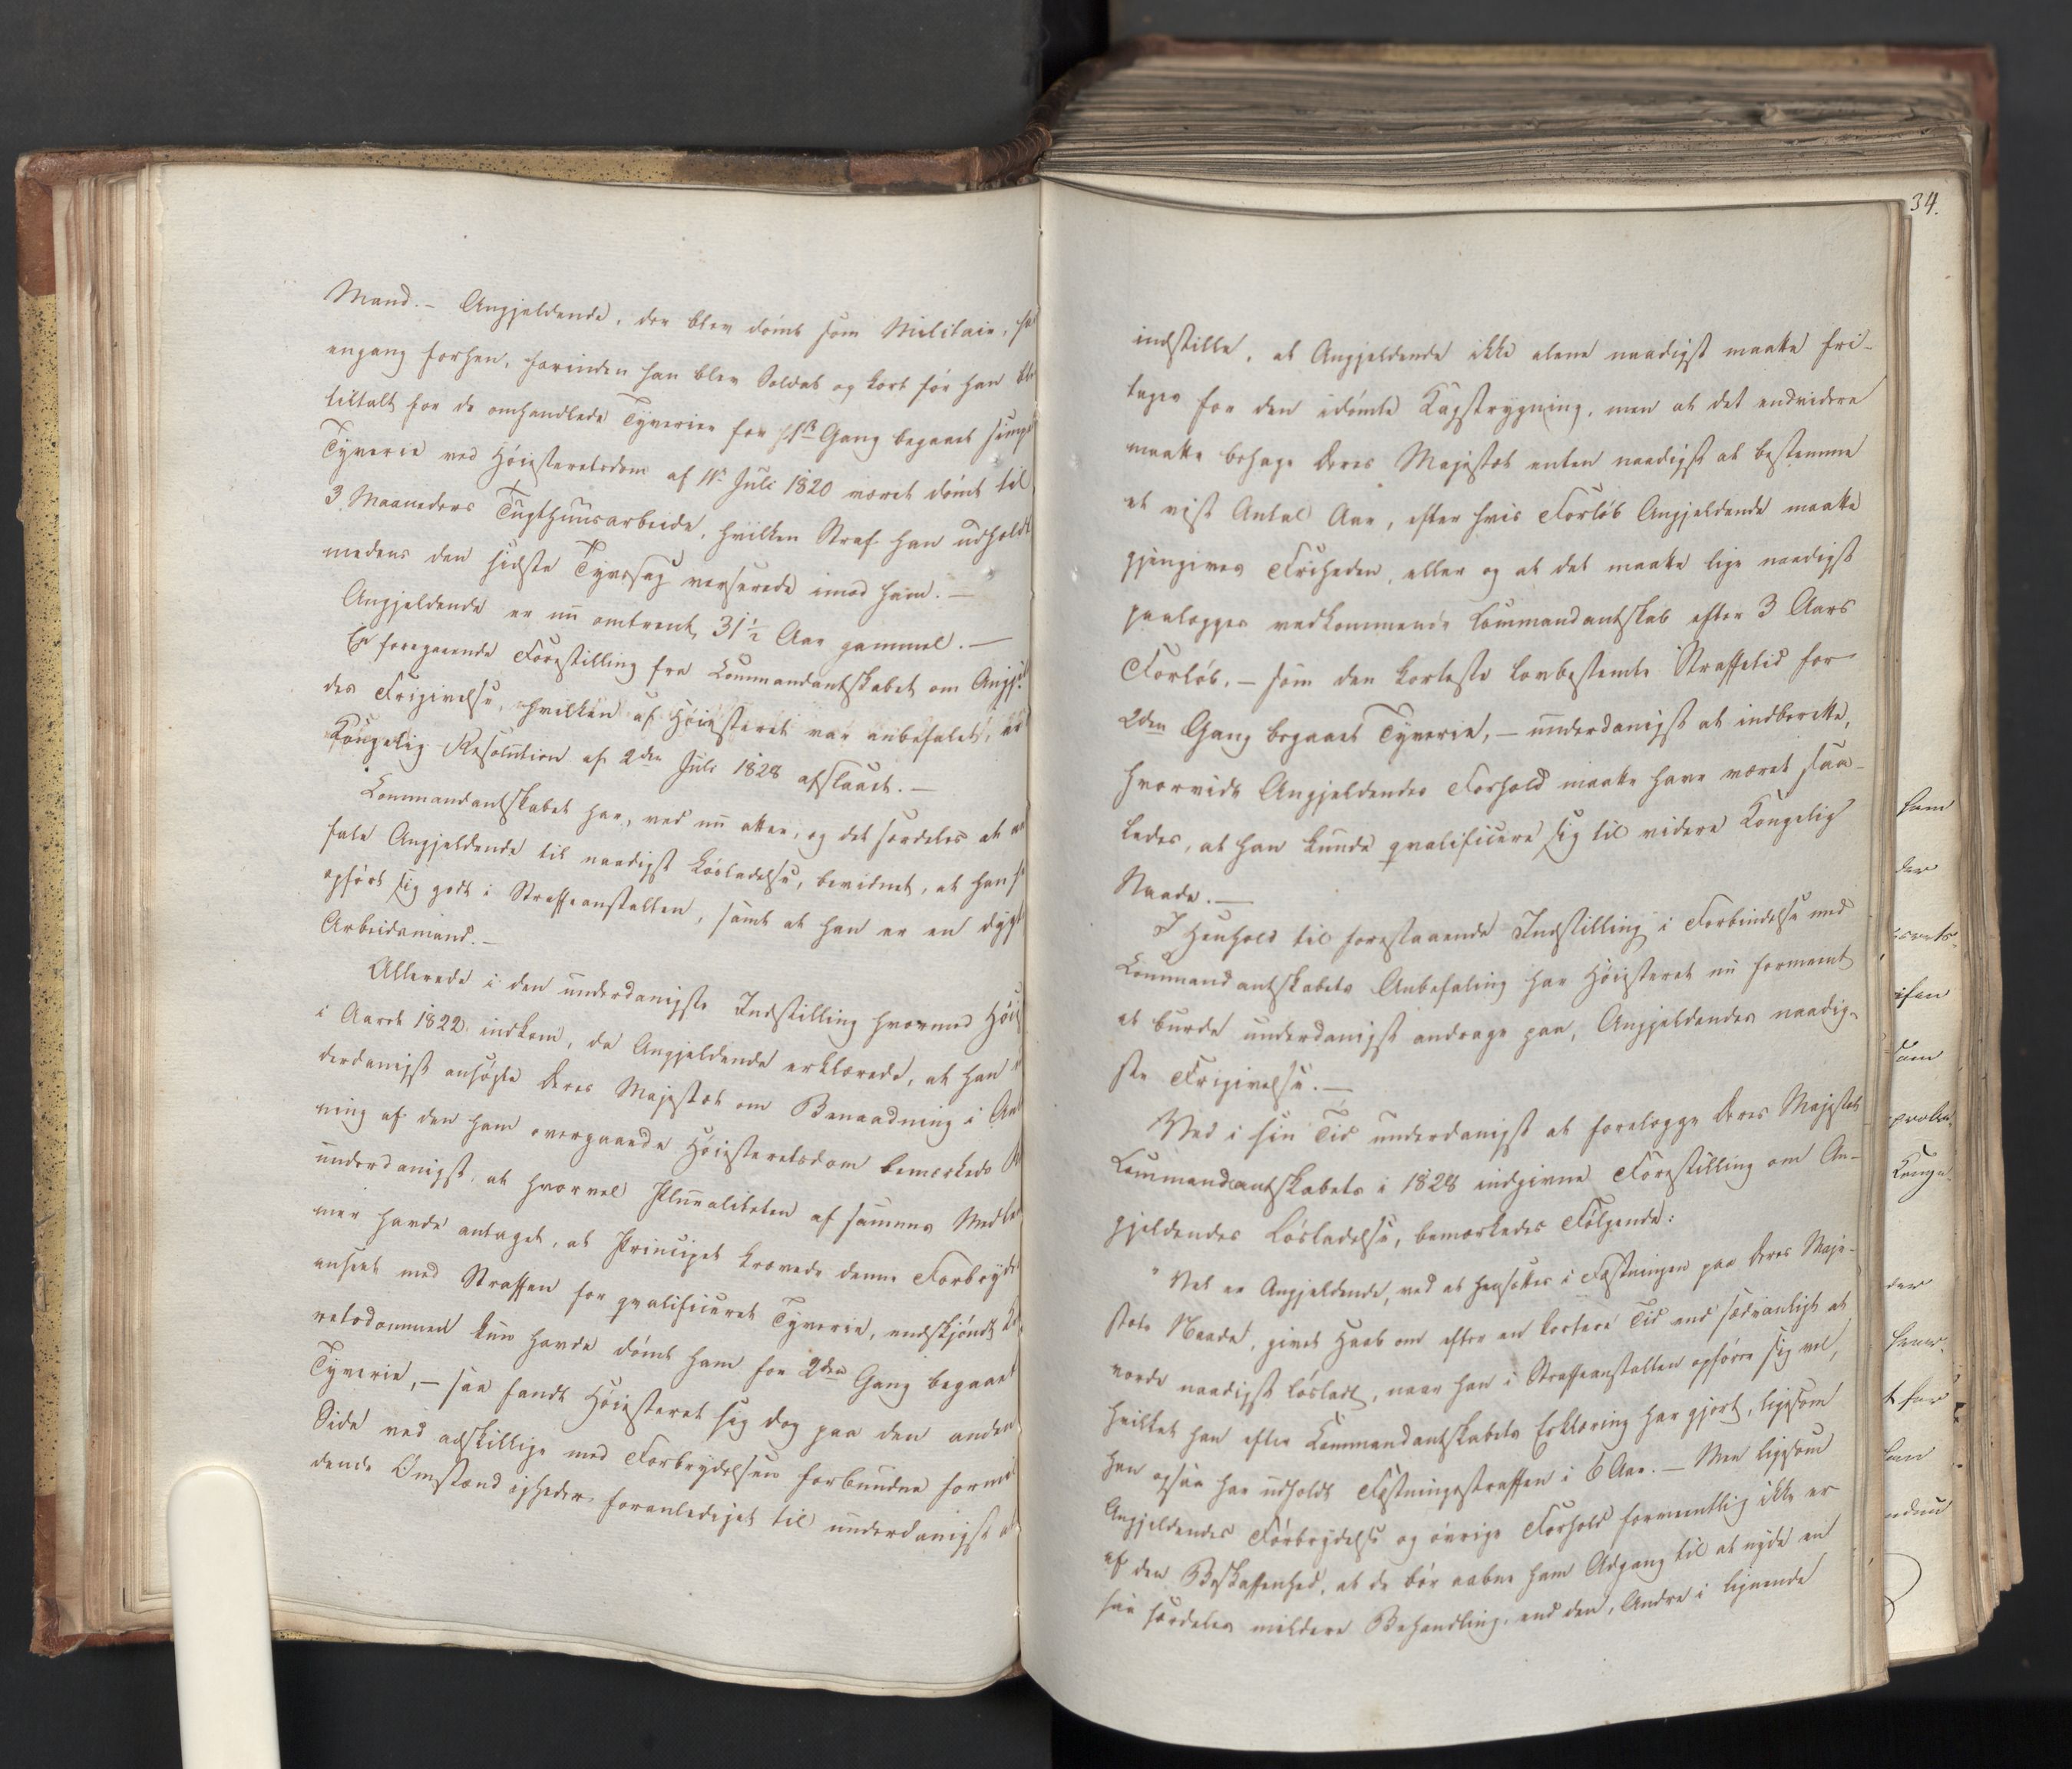 Mand. – Angjeldende, der blev dömt som Militair, ha
engang forhen, forinden han blev Soldat og kort för han ble
tiltalt for de omhandlede Tyverier for 1ste Gang begaaet simpe
Tyverie ved Höiesteretsdom af Juli 1820 været dömt til
3 Maaneders Tugthuusarbeide, hvilken Straf han udholdt
medens den sidste Tyvssag verserede imod ham. –
Angjeldende er nu omtrent 31½ Aar gammel. –
En foregaaende Forestilling fra Commandantskabet om Angjel
des Frigivelse, hvilken af Höiesteret var anbefalet, er
Kongelig Resolution af 2den Juli 1828 afslaaet. –
Commandantskabet har, ved nu atter, og det særdeles at an
fale Angjeldende til naadigst Lösladelse, bevidnet, at han h
opfört sig godt i Straffeanstalten, samt at han er en dygt
Arbeidsmand. –
Allerede i den underdanigste Indstilling hvormed Höies
i Aaret 1822 indkom, da Angjeldende erklærede, at han
derdanigst ansögte Deres Majestæt om Benaadning i An
ning af den ham overgaaede Höiesteretsdom bemærkede
underdanigst, at hvorvel Pluraliteten af sammes Medlem
mer havde antaget, at Principet krævede denne Forbryde
anseet med Straffen for qvalificeret Tyverie, endskjöndt
retsdommen kun havde dömt ham for 2den Gang begaaet
Tyverie, – saa fandt Höiesteret sig dog paa den anden
Side ved adskillige med Forbrydelsen forbundne formil
dende Omstændigheder foranlediget til underdanigst at
34.
indstille, at Angjeldende ikke alene naadigst maatte fri-
tages for den idömte Kagstrygning, men at det endvidere
maatte behage Deres Majestæt enten naadigst at bestemme
et vist Antal Aar, efter hvis Forlöb Angjeldende maatte
gjengives Friheden, eller og at det maatte lige naadigst
paalægges vedkommende Commandantskab efter 3 Aars
Forlöb, – som den korteste lovbestemte Straffetid for
2den Gang begaaet Tyverie, – underdanigst at indberette,
hvorvidt Angjeldendes Forhold maatte have været saa-
ledes, at han kunde qvalificere sig til videre Kongelig
Naade. –
I Henhold til forestaaende Indstilling i Forbindelse med
Commandantskabets Anbefaling har Höiesteret nu formeent
at burde underdanigst andrage paa, Angjeldendes naadig-
ste Frigivelse. –
Ved i sin Tid underdanigst at forelægge Deres Majestæt
Commandantskabets i 1828 indgivne Forestilling om An-
gjeldendes Lösladelse, bemærkedes Fölgende:
"Vel er Angjeldende, ved at hensættes i Fæstningen paa Deres Maje-
stæts Naade, givet Haab om efter en kortere Tid end sædvanligt at
vorde naadigst lösladt, naar han i Straffeanstalten opförer sig vel,
hvilket han efter Commandantskabets Erklæring har gjort, ligesom
han ogsaa har udholdt Fæstningsstraffen i 6 Aar. – Men ligesom
Angjeldendes Forbrydelse og övrige Forhold formeentlig ikke er
af den Beskaffenhed, at de bör aabne ham Adgang til at nyde en
saa særdeles mildere Behandling, end den, Andre i lignende